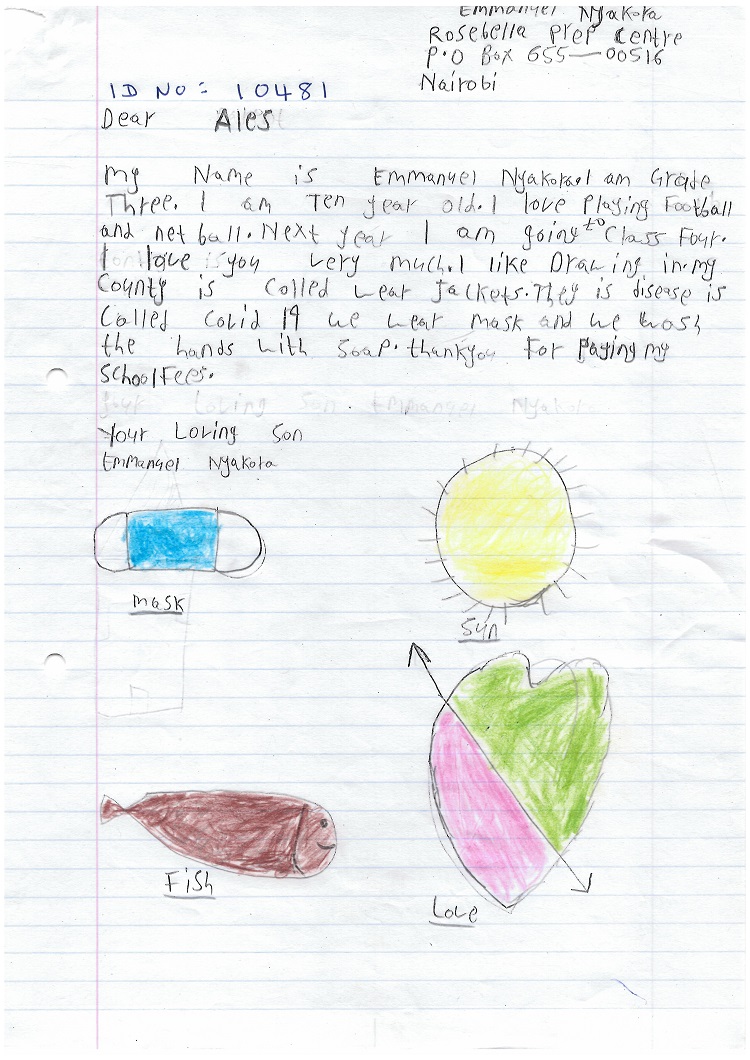 Emmanuel Nyakora
Rosebella Prep Centre
P.O Box 655-00516
Nairobi
ID NO: 10481
Dear Ales
My Name is Emmanuel Nyakora.I am Grade
Three. I am Ten year old. I love Playing Football
and net ball. Next year I am going to Class Four.
I love you very much. I like Drawing in. my
County is Called wear Jackets. They is disease is
Called Covid 19 we wear mask and we wash
the hands with Soap. thankyou For Paying my
School Fees.
Your Loving Son Emmanuel Nyakora
Your Loving Son
Emmanuel Nyakora
mask
Sun
Fish
Love